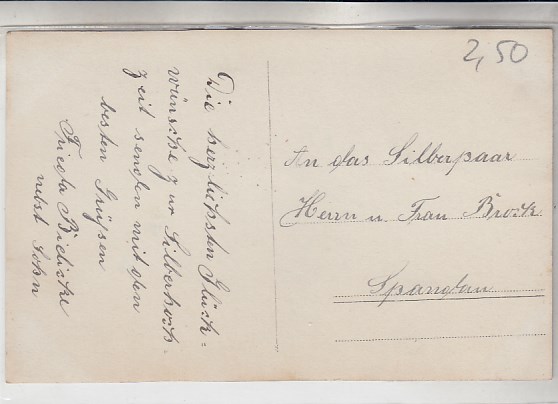 2,50
Die herzlichsten Glück-
wünsche zur Silberhoch-
zeit senden mit den
besten Grüßen
Frieda Bielicke
nebst Sohn
An das Silberpaar
Herrn u. Frau Brock
Spandau